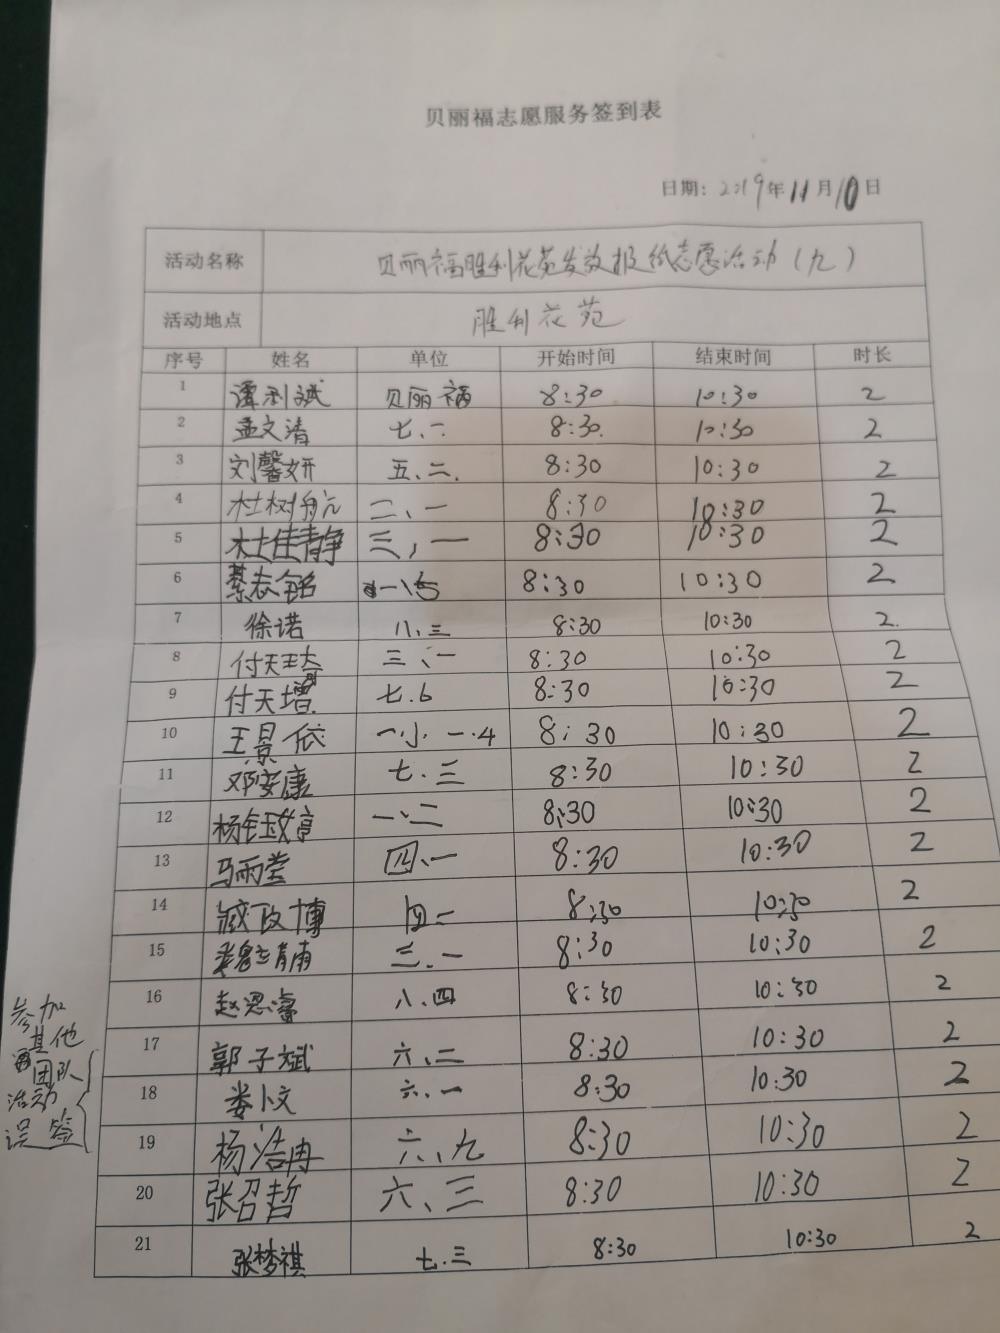 贝丽福志愿服务签到表
日期：2019年11月10日
活动名称 贝丽福胜利花苑发放报纸志愿活动（九）
活动地点 胜利花苑
序号 姓名 单位 开始时间 结束时间 时长
1 谭利斌 贝丽福 8:30 10:30 2
2 孟文清 七.二 8:30 10:30 2
3 刘馨妍 五、二 8:30 10:30 2
4 杜树航 二、一 8:30 10:30 2
5 杜佳静 三,一 8:30 10:30 2
6 蔡志铭 一、5 8:30 10:30 2
7 徐诺 八.三 8:30 10:30 2
8 付天琦 三、一 8:30 10:30 2
9 付天增 七.6 8:30 10:30 2
10 王景依 一小.一.4 8:30 10:30 2
11 邓安康 七.三 8:30 10:30 2
12 杨钰婷 一、二 8:30 10:30 2
13 马雨莹 四、一 8:30 10:30 2
14 臧政博 四二 8:30 10:30 2
15 8:30 10:30 2
16 赵思睿 八.四 8:30 10:30 2
17 郭子斌 六、二 8:30 10:30 2
18 娄小文 六.一 8:30 10:30 2
19 杨浩冉 六、九 8:30 10:30 2
20 张召哲 六、三 8:30 10:30 2
21 张梦祺 七.三 8:30 10:30 2
参加
其他
团队
活动
误签